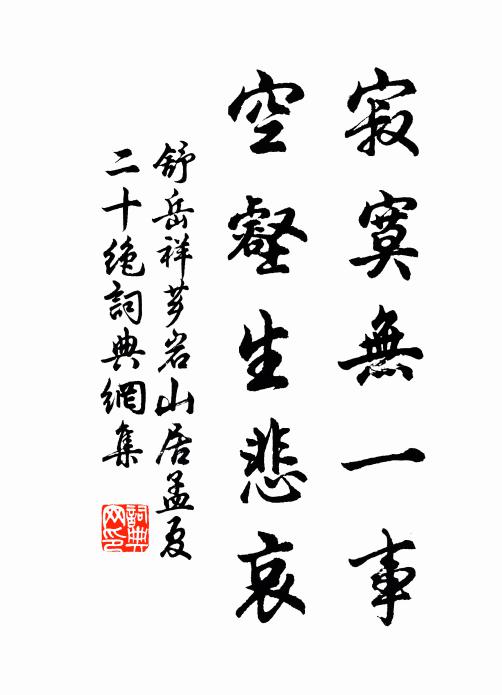 寂寞無一事
空壑生悲哀
舒岳祥夢岩山居孟夏
二十絶詞典網集
詞典
网印